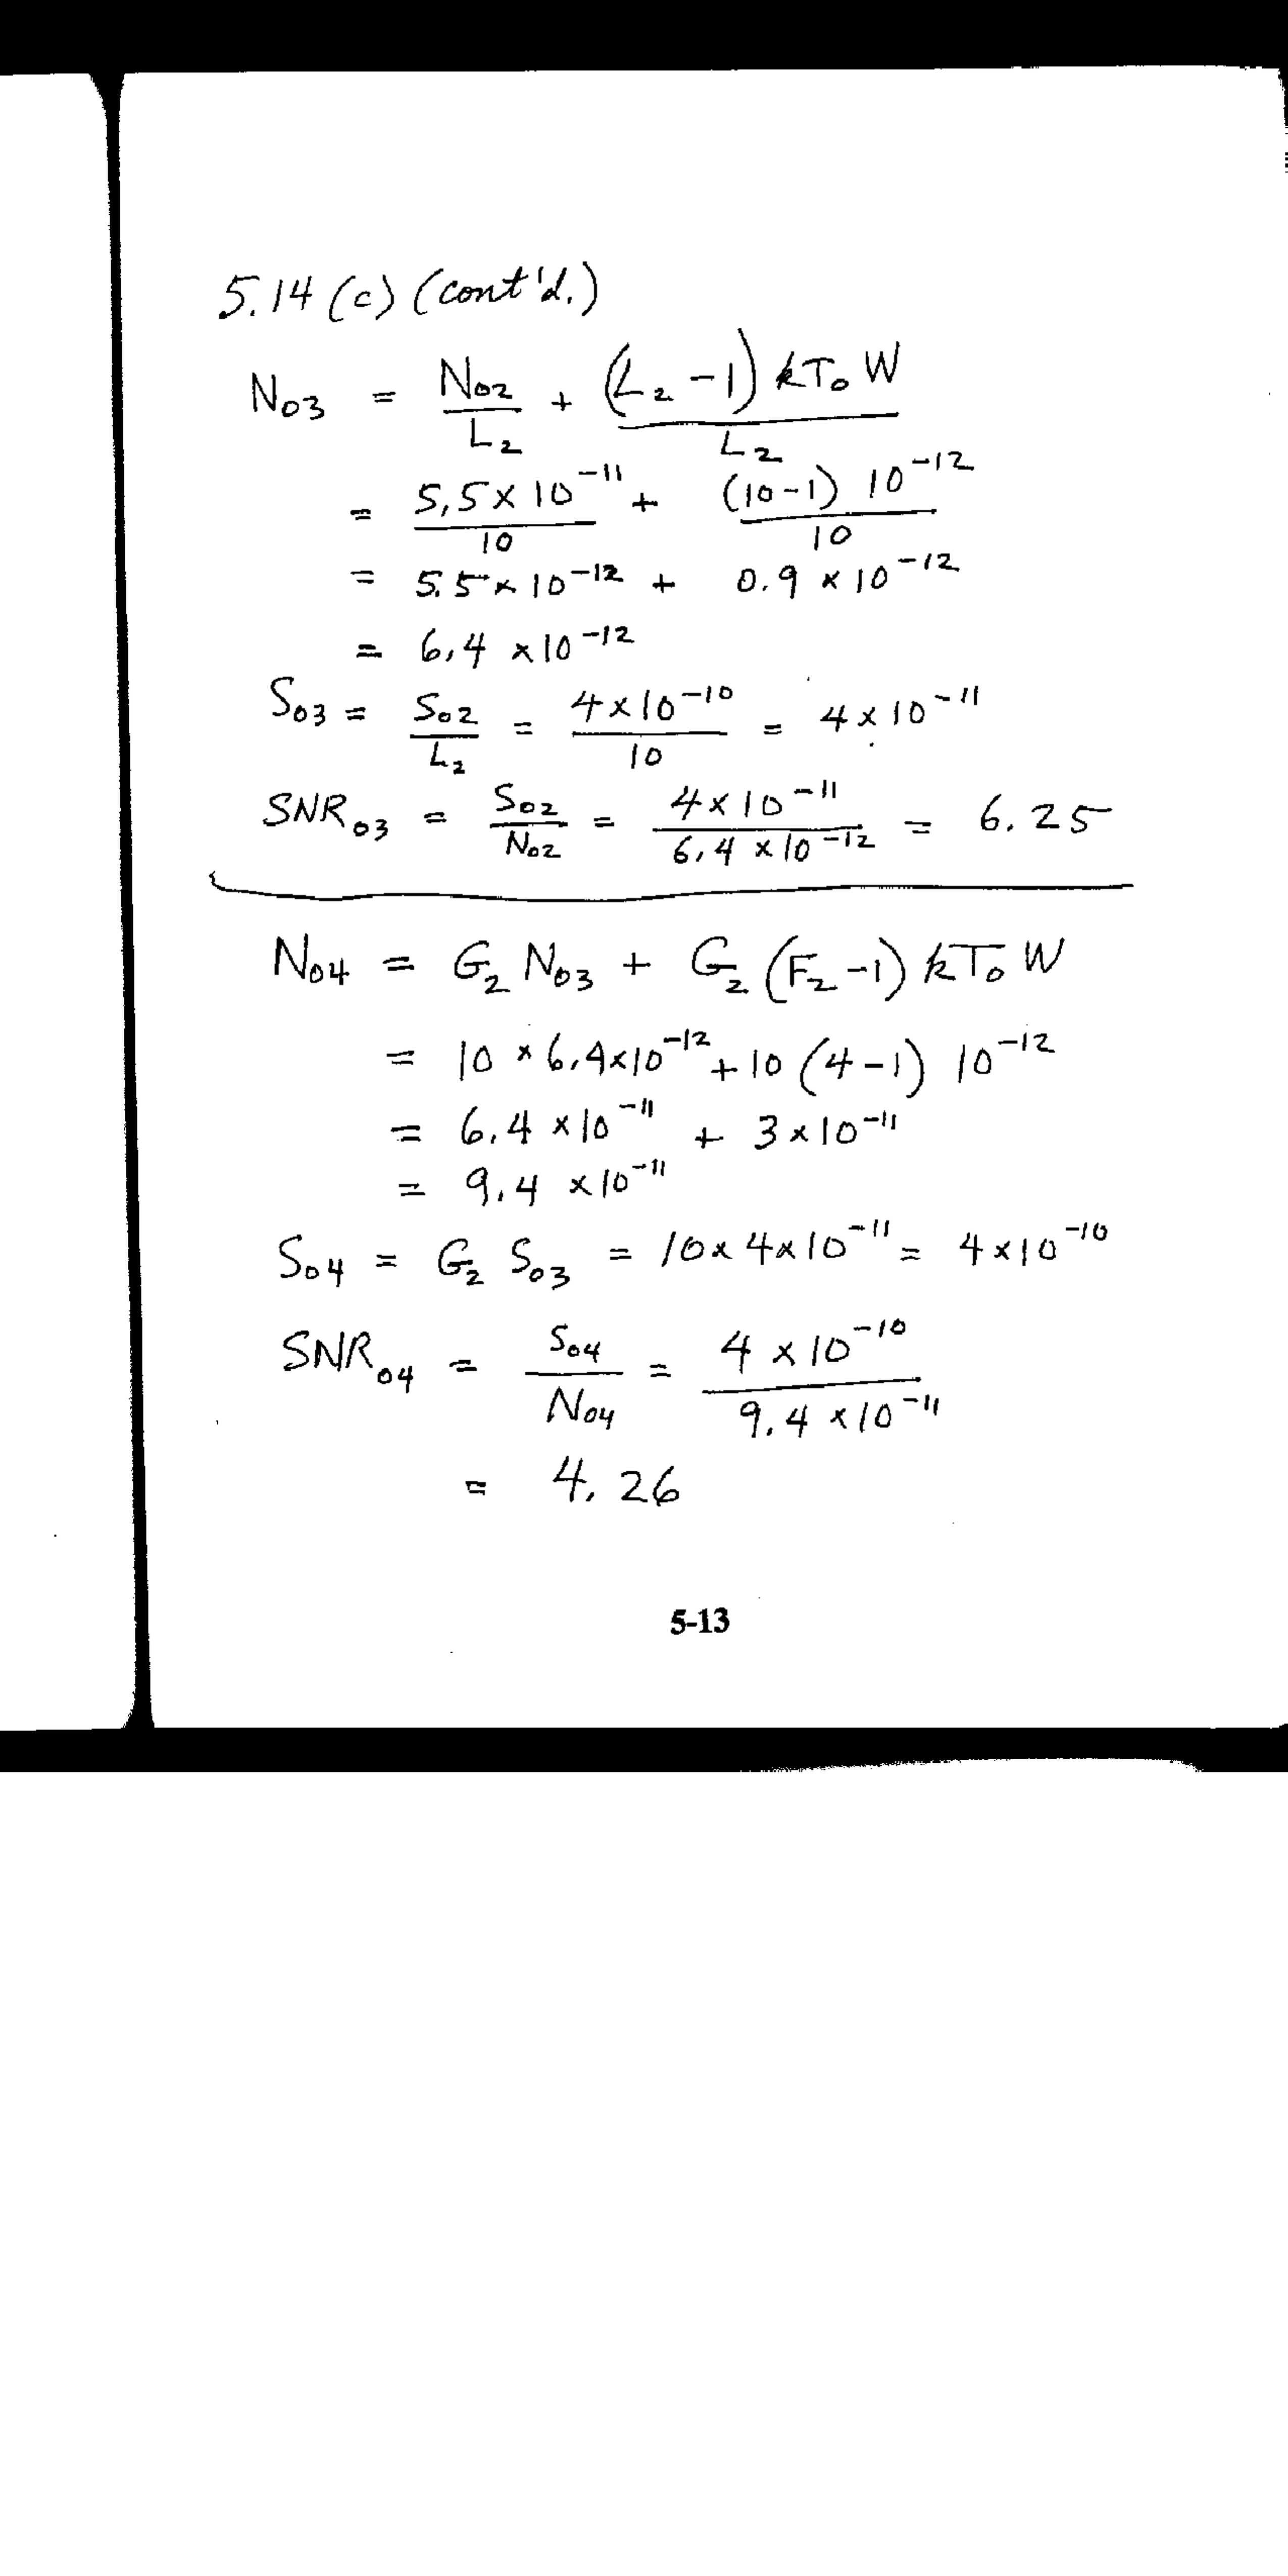 5.14 (c) (cont'd.)
N03 = N02/L2 + (L2 -1) kT0 W/L2
= 5,5 × 10^-11/10 + (10-1) 10^-12/10
= 5.5 × 10^-12 + 0.9 × 10^-12
= 6,4 × 10^-12
S03 = S02/L2 = 4 × 10^-10/10 = 4 × 10^-11
SNR03 = S02/N02 = 4 × 10^-11/6,4 × 10^-12 = 6.25
N04 = G2 N03 + G2 (F2 -1) kT0 W
= 10 × 6.4 × 10^-12 + 10 (4-1) 10^-12
= 6.4 × 10^-11 + 3 × 10^-11
= 9.4 × 10^-11
S04 = G2 S03 = 10 × 4 × 10^-11 = 4 × 10^-10
SNR04 = S04/N04 = 4 × 10^-10/9.4 × 10^-11
= 4.26
5-13